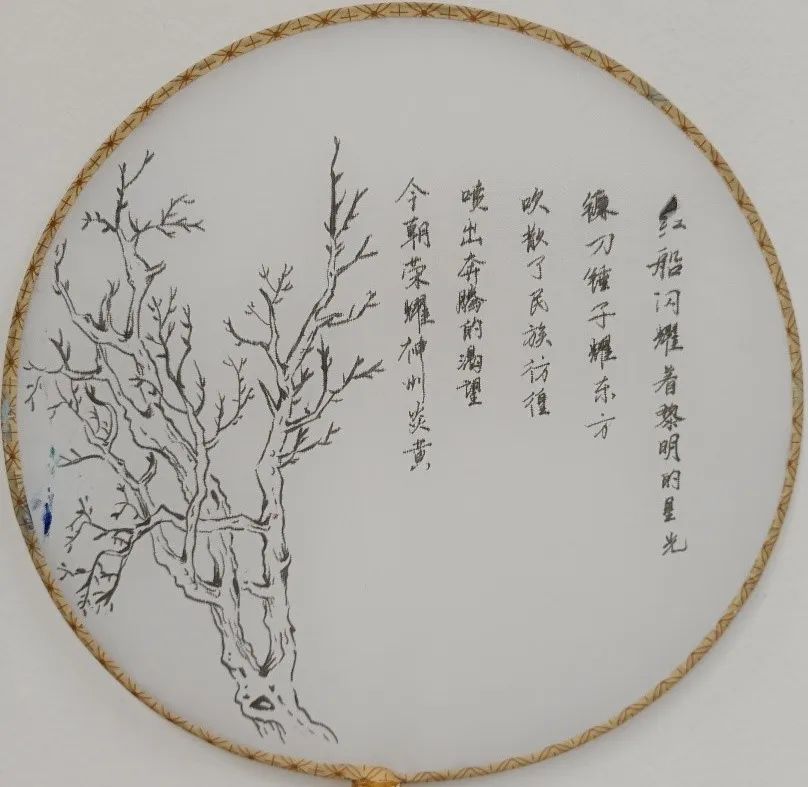 红船闪耀着黎明的星光
镰刀锤子耀东方
吹散了民族彷徨
喷出奔腾的渴望
今朝荣耀神州炎黄